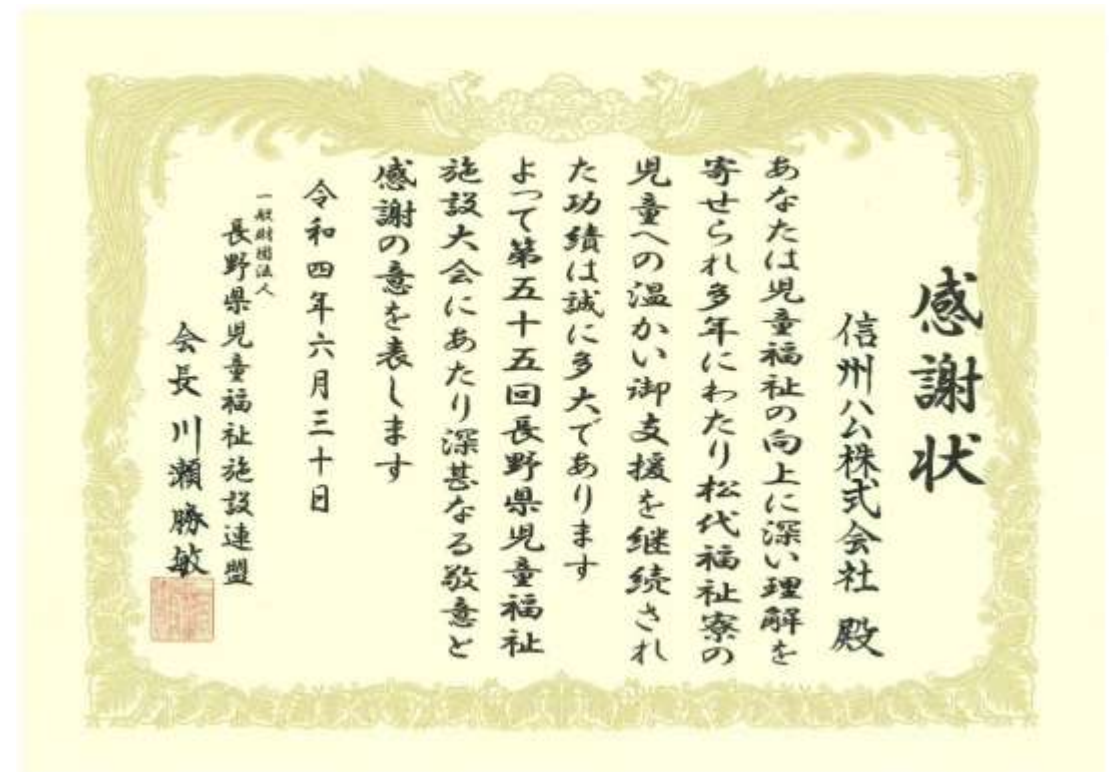 感謝状
信州ハム株式会社 殿
あなたは児童福祉の向上に深い理解を
寄せられ多年にわたり松代福祉寮の
児童への温かい御支援を継続され
た功績は誠に多大であります
よって第五十五回長野県児童福祉
施設大会にあたり深甚なる敬意と
感謝の意を表します
令和四年六月三十日
一般財団法人
長野県児童福祉施設連盟
会長 川瀬勝敏